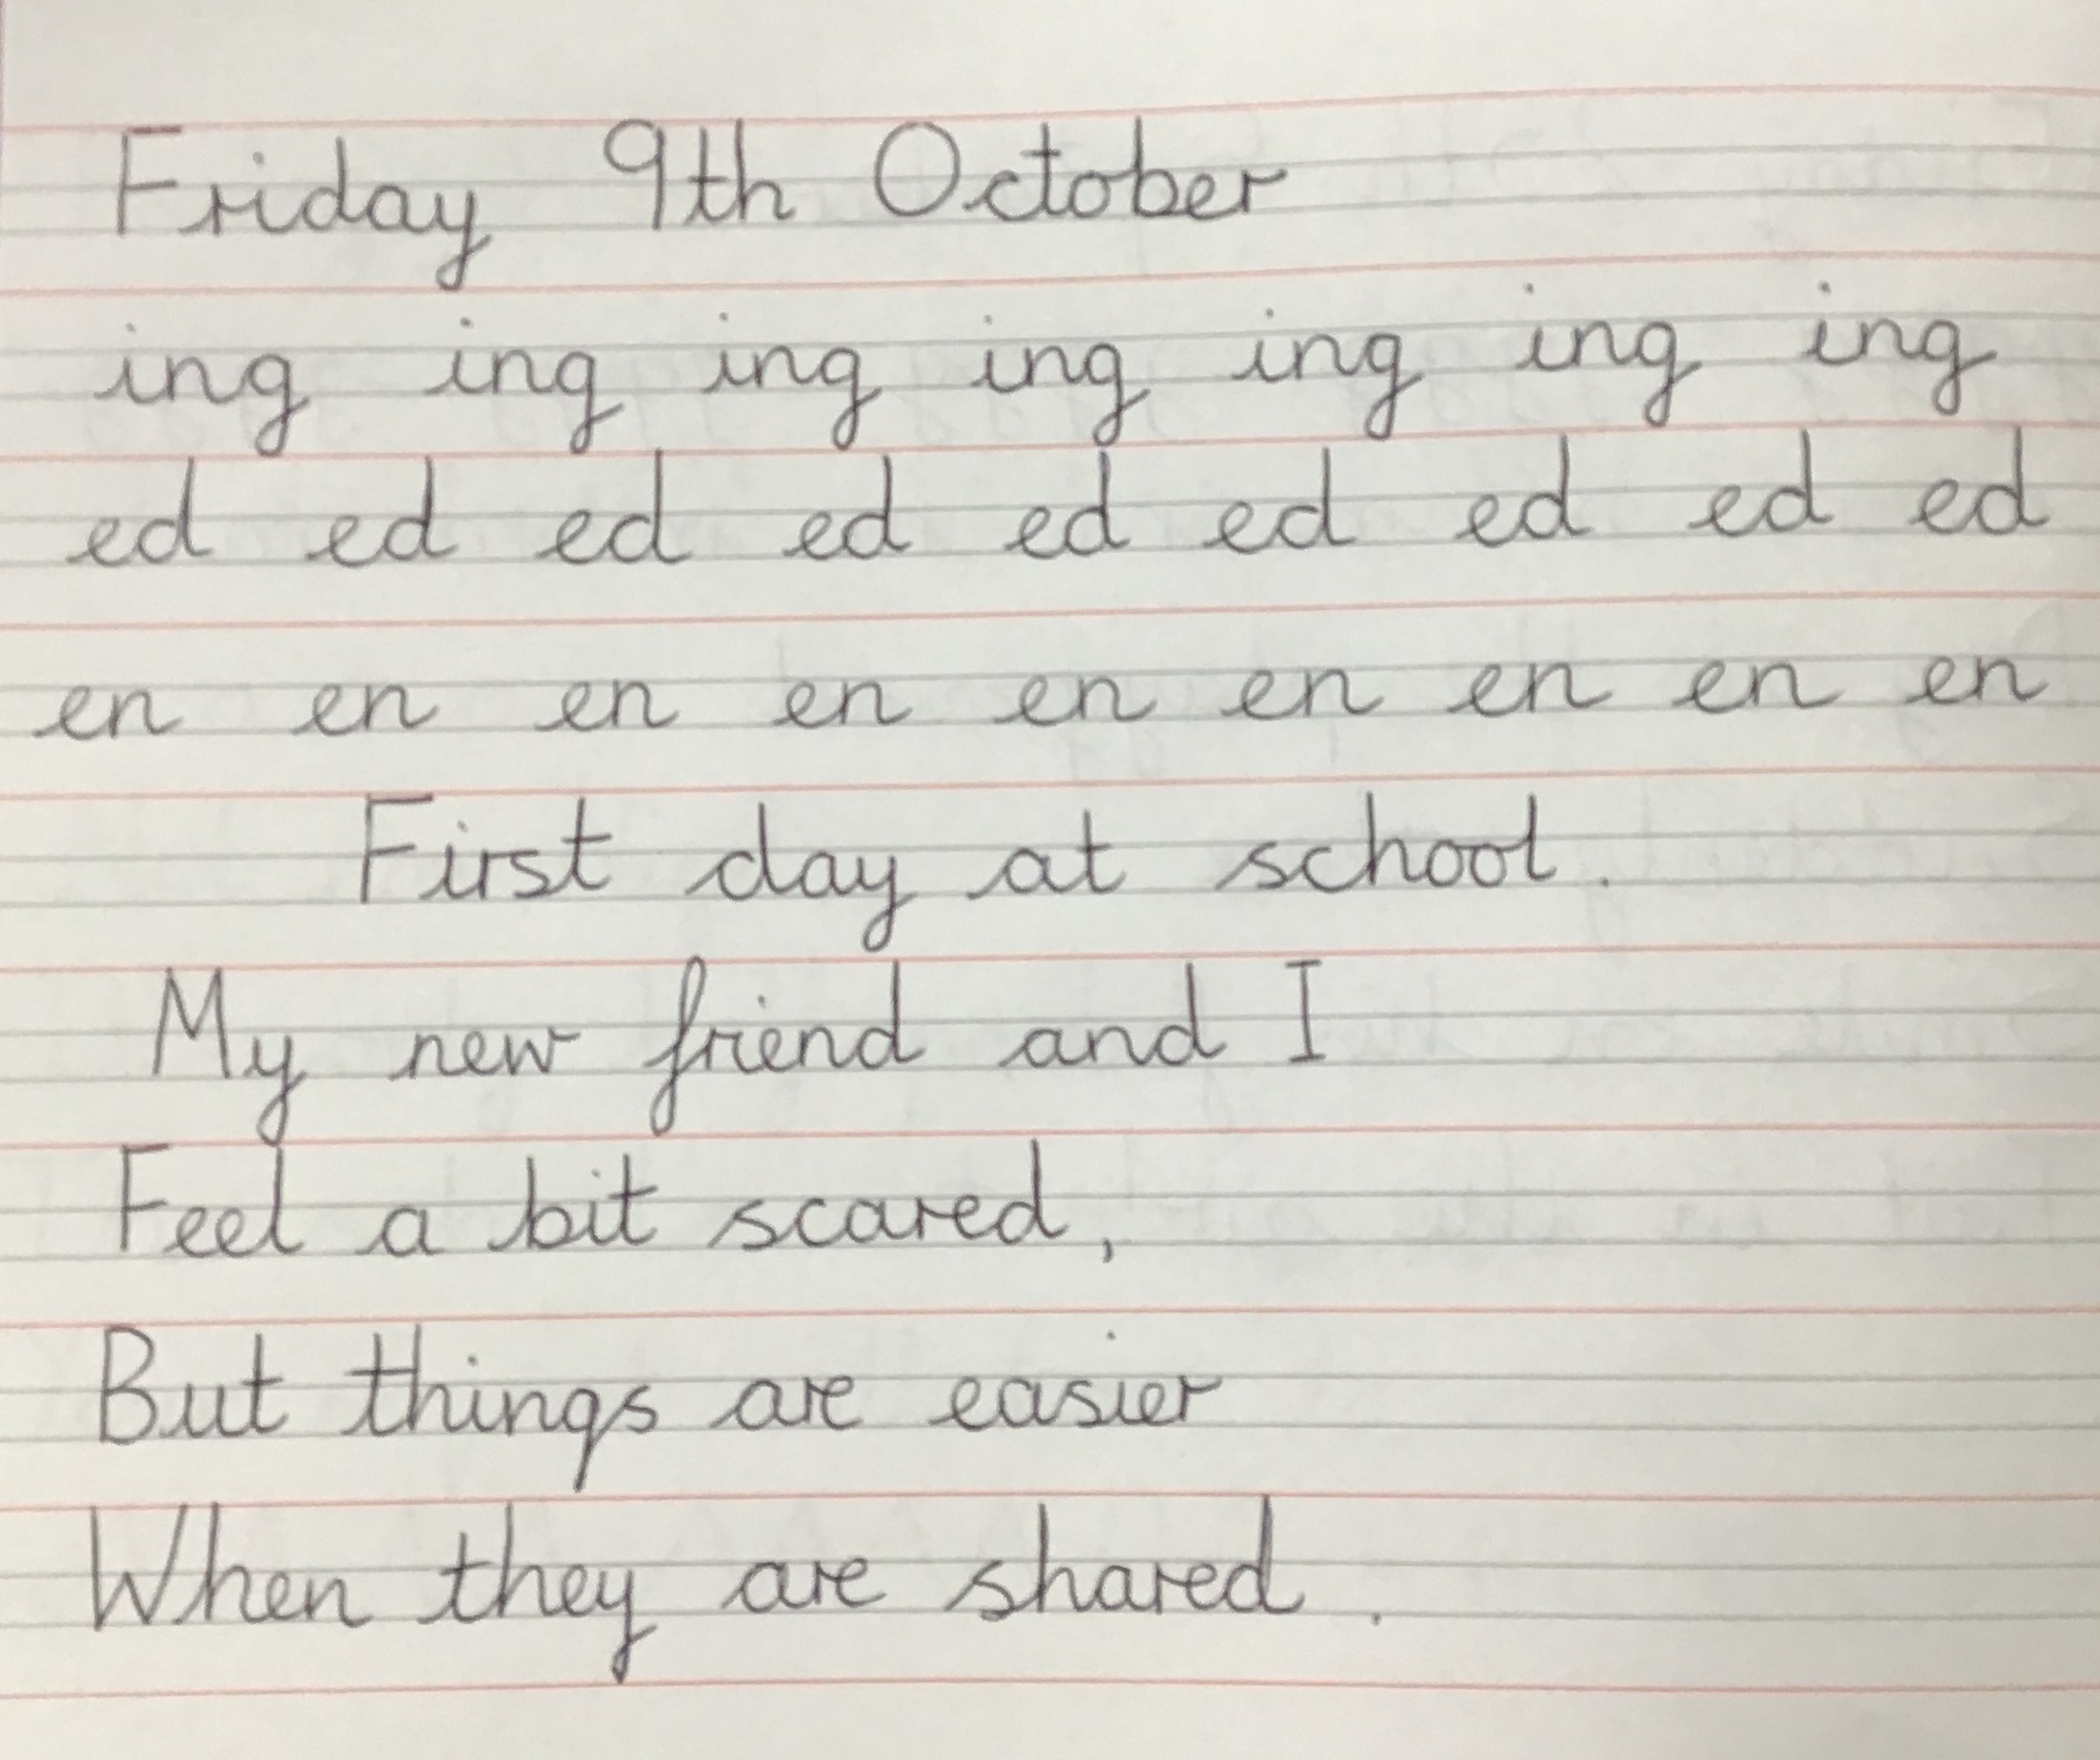 Friday 9th October
ing ing ing ing ing ing ing
ed ed ed ed ed ed ed ed ed
en en en en en en en en en
First day at school.
My new friend and I
Feel a bit scared,
But things are easier
When they are shared.